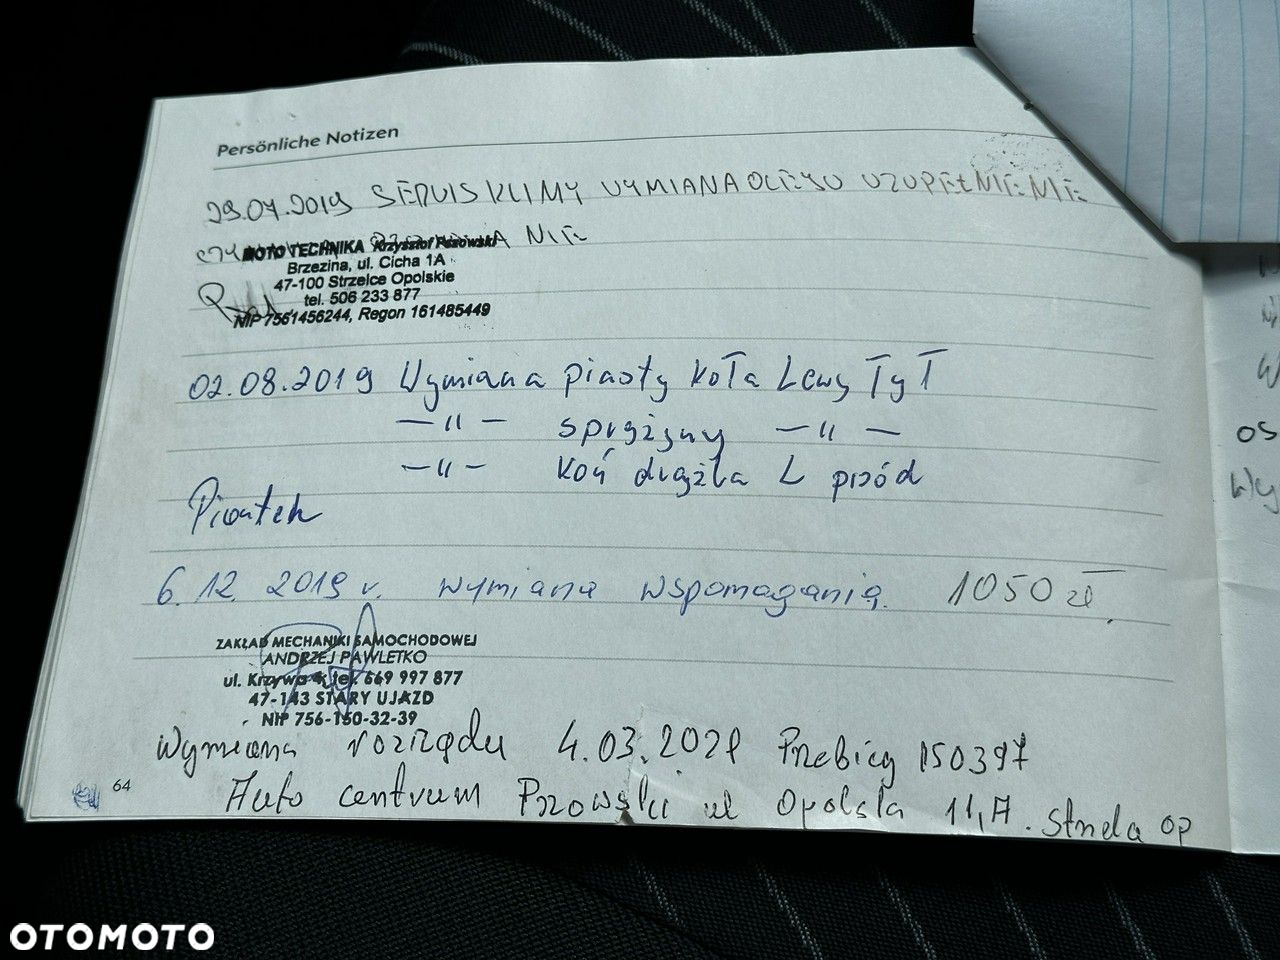 Persönliche Notizen
29.07.2019 SERWIS KLIMY WYMIANA OLEJU UZUPEŁNIENIE
NIE
MOTO TECHNIKA Krzysztof
Brzezina, ul. Cicha 1A
47-100 Strzelce Opolskie
tel. 506 233 877
NIP 7561456244, Regon 161485449
02.08.2019 Wymiana piasty koła Lewy Tył
—〃— sprężyny —〃—
—〃— koń drążka L przód
Piontek
6.12. 2019 r. wymiana wspomagania 1050 zł
ZAKŁAD MECHANIKI SAMOCHODOWEJ
ANDRZEJ PAWLETKO
ul. Krzywa 4, tel. 669 997 877
47-143 STARY UJAZD
NIP 756-150-32-39
Wymiana rozrządu 4.03.2021 Przebieg 150397
Auto centrum ul Opolska 11,A. op
64
os
Wy
OTOMOTO